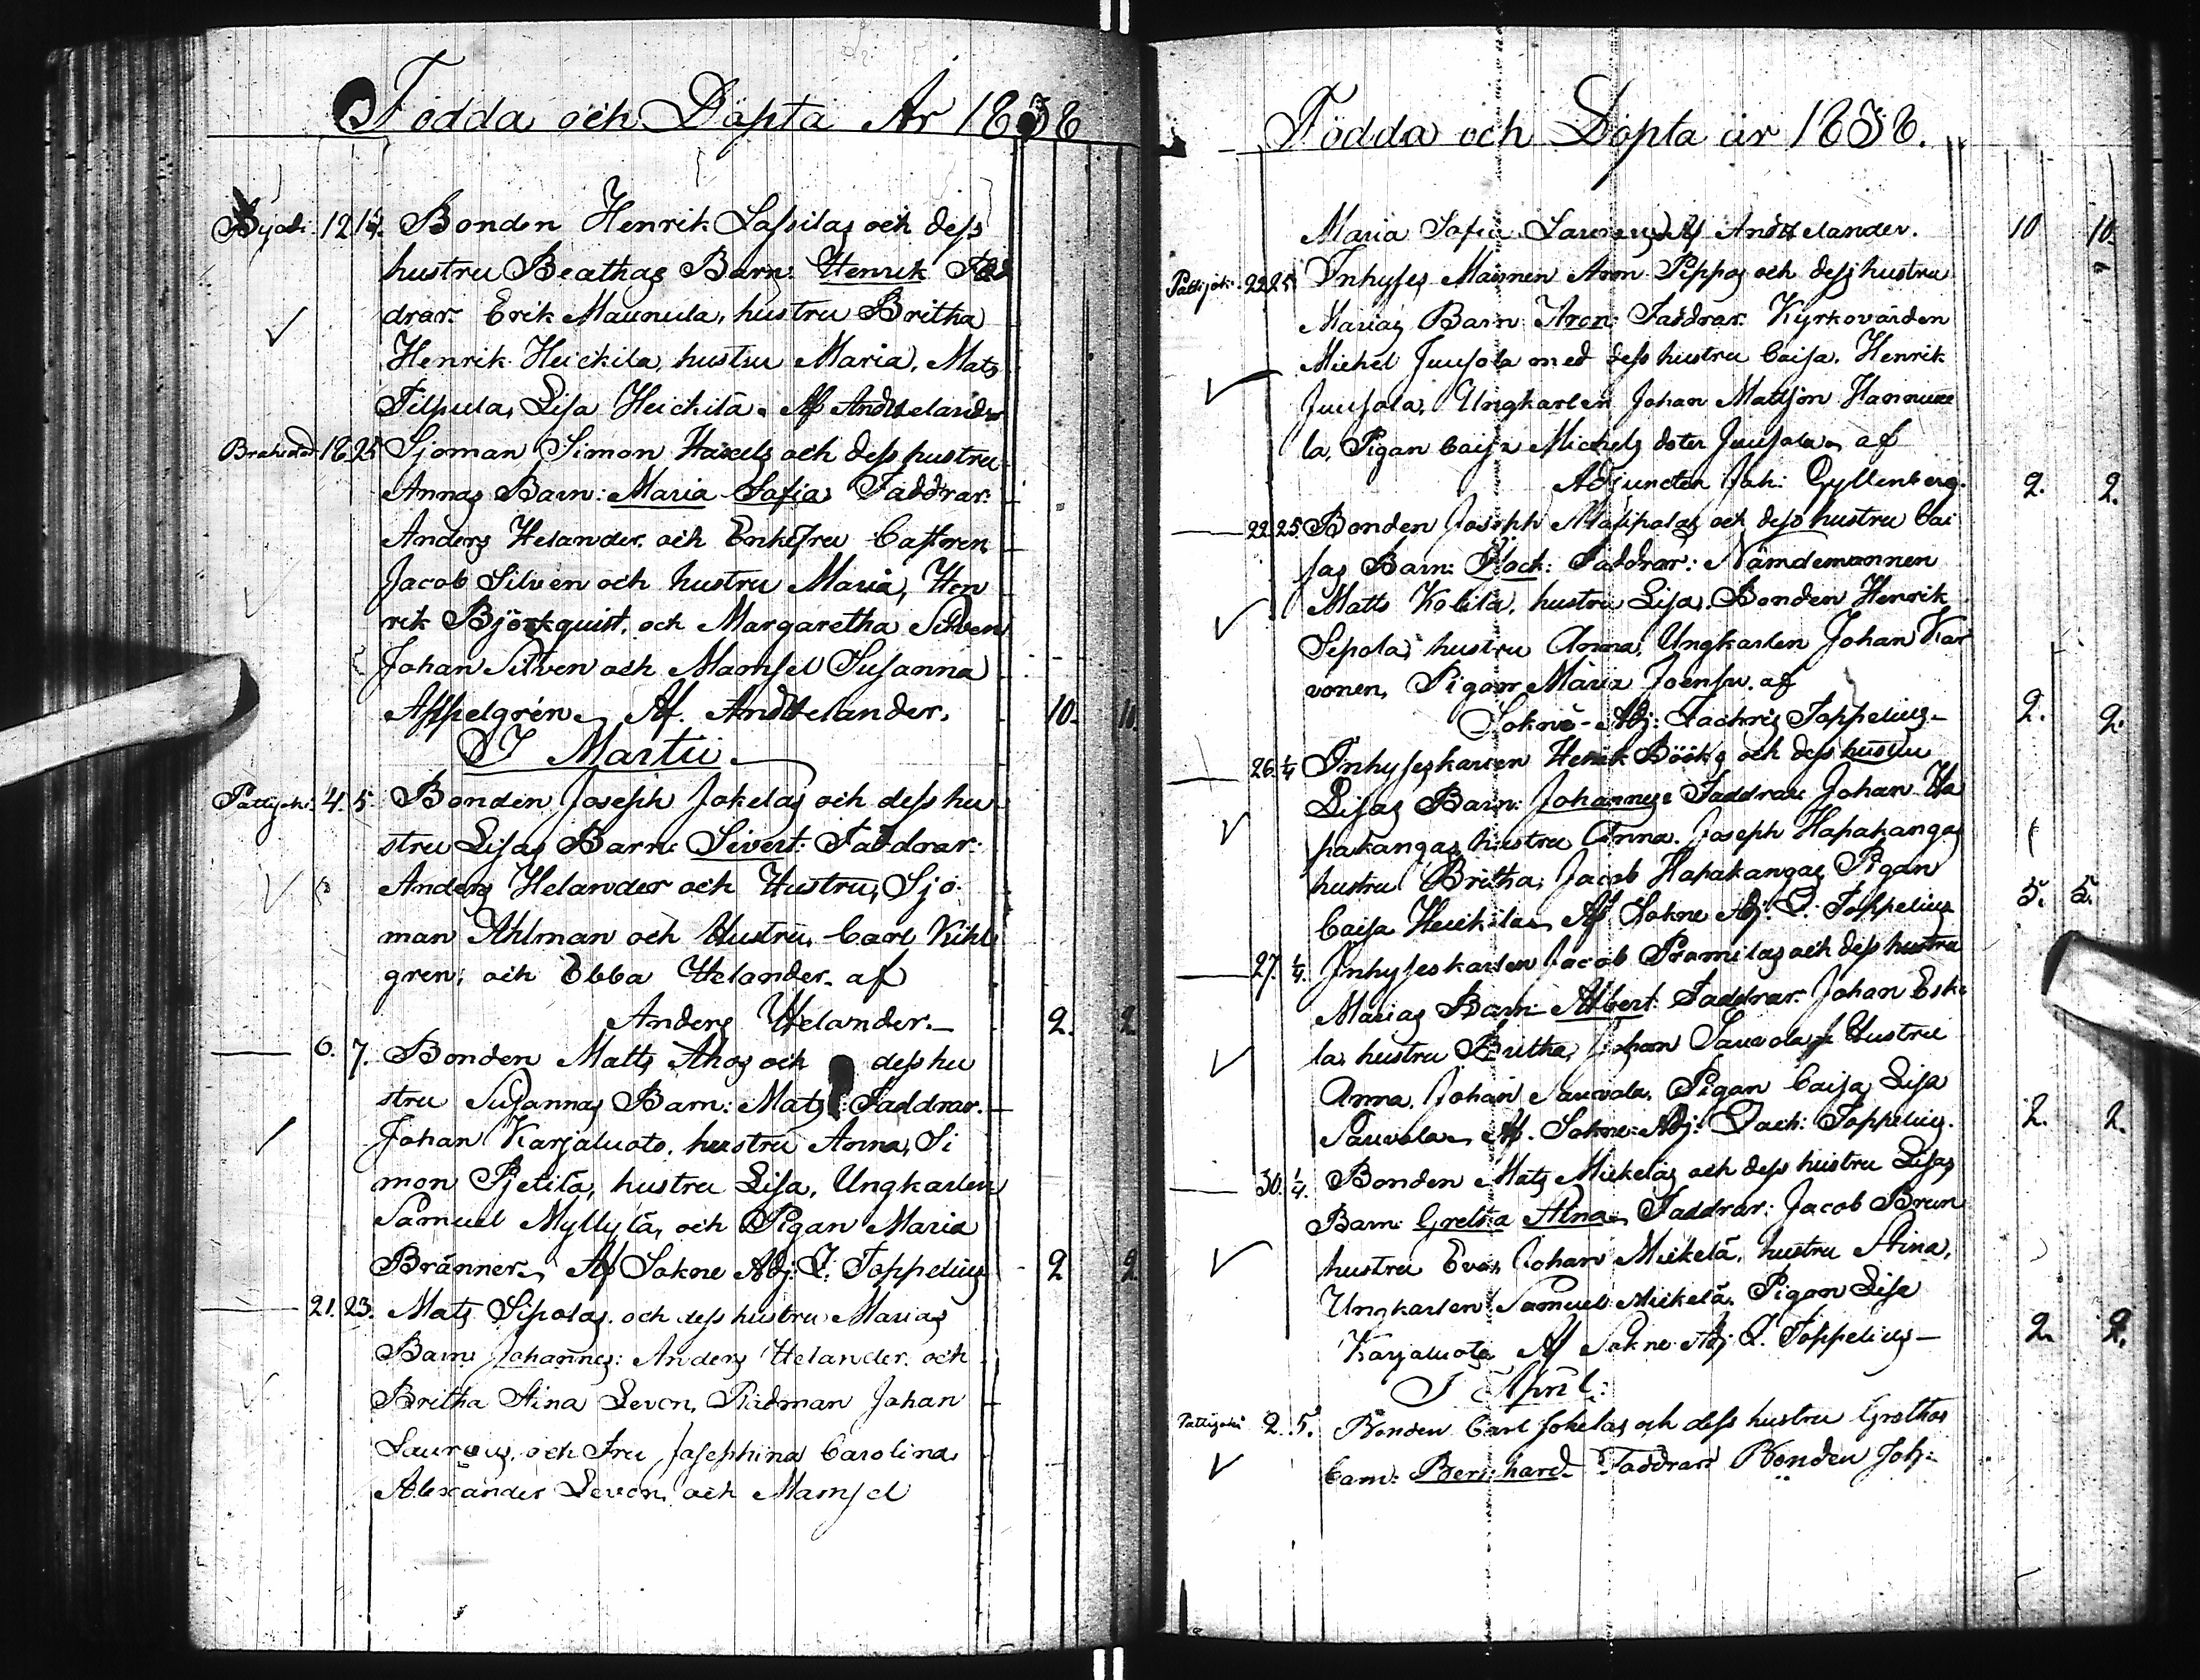 Födda och Döpta År 1838
Byjoki 12 14. Bonden Henrik Lassilas och dess
hustru Beathas Barn: Henrik Fad
drar: Erik Maunula, hustru Britha
Henrik Heickila, hustru Maria, Mats
Tilpula, Lisa Heickilä. Af And Helander
Brahestad 18 25 Sjöman Simon Haxels och dess hustru
Annas Barn: Maria Sofia Faddrar:
Anders Helander och Enkefru Castren
Jacob Silven och hustru Maria, Hen
rik Björkquist, och Margaretha Silven
Johan Silven och Mamsel Susanna
Appelgrén. Af. And Helander. 10. 10.
I Martii
Pattijoki 4. 5. Bonden Joseph Jokelas och dess hu
stru Lisas Barn: Sivert: Faddrar:
Anders Helander och Hustru, Sjö
man Ahlman och Hustru, Carl Kihl
gren, och Ebba Helander. af
Anders Helander. 2. 2
6. 7. Bonden Matts Ahos och dess hu
stru Susannas Barn: Mats: Faddrar.
Johan Karjaluoto, hustru Anna, Si
mon Pjetilä, hustru Lisa, Ungkarlen
Samuel Myllylä, och Pigan Maria
Bränner. Af Sokne Adj: Z. Toppelius 2 2
21. 23. Mats Sipolas och dess hustru Marias
Barn Johannes: Anders Helander och
Britha Stina Leven, Rådman Johan
Laureus och Fru Josephina Carolina
Alexander Leven, och Mamsel
Födda och Döpta år 1838.
Maria Sofia Laureus. Af And Helander. 10 10.
Pattijoki 22 25 Inhyses Mannen Aron Pippos och dess hustru
Marias Barn: Aron: Faddrar: Kyrkovärden
Michel Juusola med dess hustru Caisa, Henrik
Juusola, Ungkarlen Johan Mattson Hannu
la, Pigan Caisa Michels doter Juusola. af
Adjuncten Joh: Gyllenberg. 2. 2.
22. 25. Bonden Joseph Matipolas och dess hustru Cai
sas Barn: Isack: Faddrar: Nämdemannen
Matts Kolila, hustru Lisa, Bonden Henrik
Sepola, hustru Anna, Ungkarlen Johan Kar
vonen, Pigan Maria Joensu. af
Sokne-Adj: Zachris Toppelius. 2. 2.
26. 1/4 Inhyseskarlen Henrik Bööks och dess hustru
Lisas Barn: Johannes. Faddrar Johan Ha
pakangas hustru Anna. Joseph Hapakangas
hustru Britha, Jacob Hapakangas Pigan
Caisa Heickila. Af Sokne Adj: Z. Toppelius 5. 5.
27. 1/4. Inhyseskarlen Jacob Pramilas och dess hustru
Marias Barn Albert. Faddrar: Johan Eske
la, hustru Britha, Johan Sauvola, Hustru
Anna. Johan Sauvola, Pigan Caisa Lisa
Sauvola. Af. Sokne-Adj: Zach: Toppelius. 2. 2.
30. 1/4. Bonden Mats Mickeläs och dess hustru Lisas
Barn: Greta Stina. Faddrar: Jacob Brun
hustru Eva, Johan Mickelä, hustru Stina,
Ungkarlen Samuel Mickelä, Pigan Lisa
Karjaluoto Af Sokne Adj Z. Toppelius 2. 2.
I April:
Pattijoki 2. 5. Bonden Carl Jokelas och dess hustru Grethas
barn: Bernhard. Faddrar: Bonden Joh: